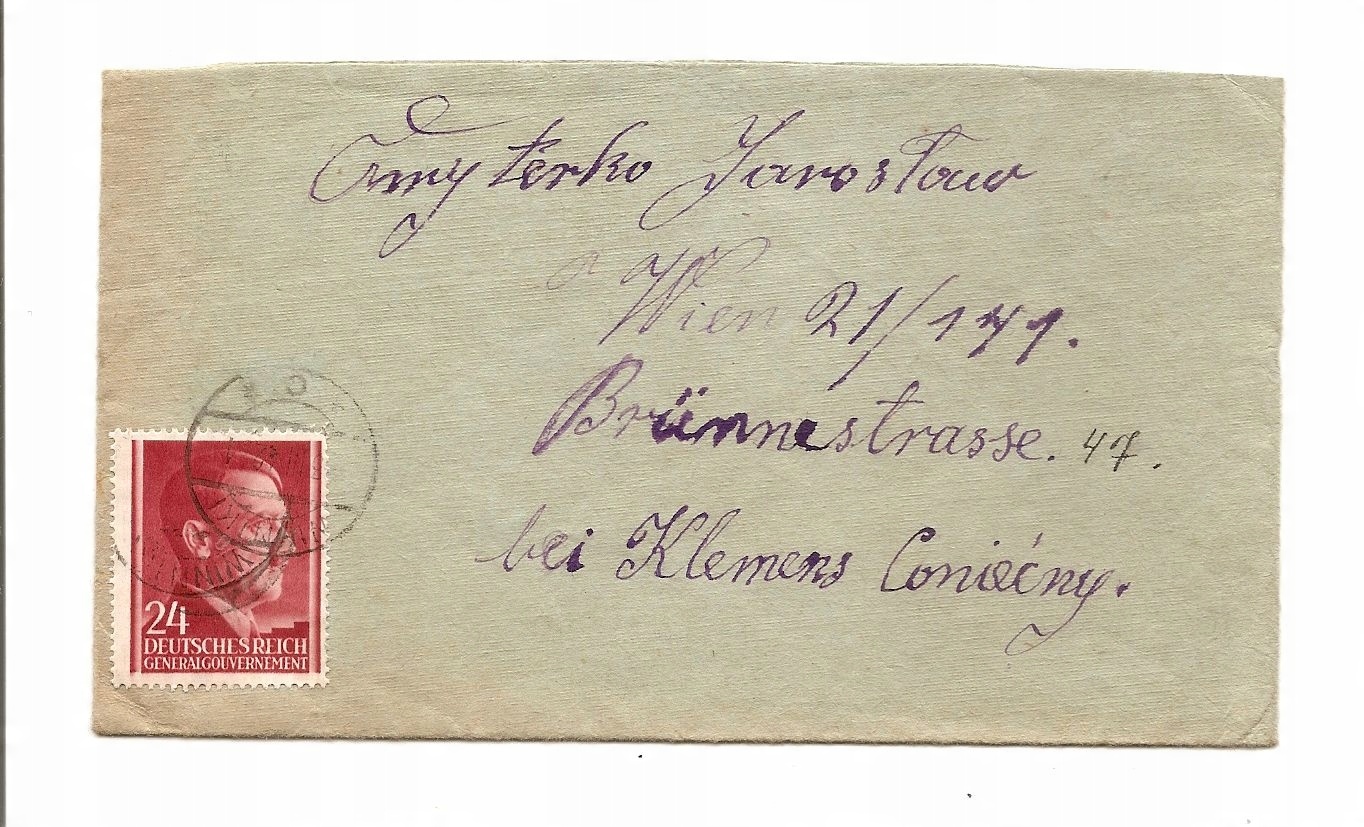 Jarosław
Wien 21/141.
Brünnestrasse. 47.
bei Klemens
24
DEUTSCHES REICH
GENERALGOUVERNEMENT